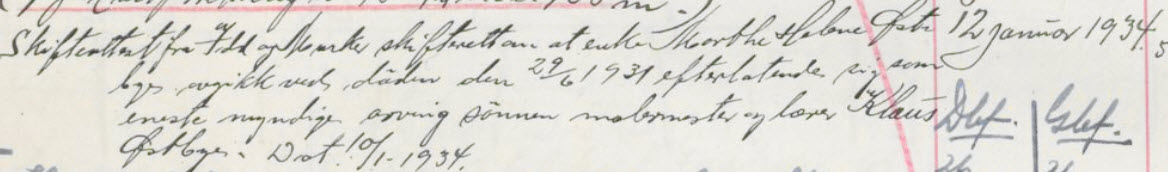 Skifteattest fra Idd og Marker skifterett om at enke Marthe Helene Østbye 12 januar 1934.
bye avgikk ved døden den 29/6 1931 efterlatende sig som
eneste myndige arving sønnen malermester og lærer Klaus
Østbye. Dat. 10/1-1934.
Dbf. Gbf.